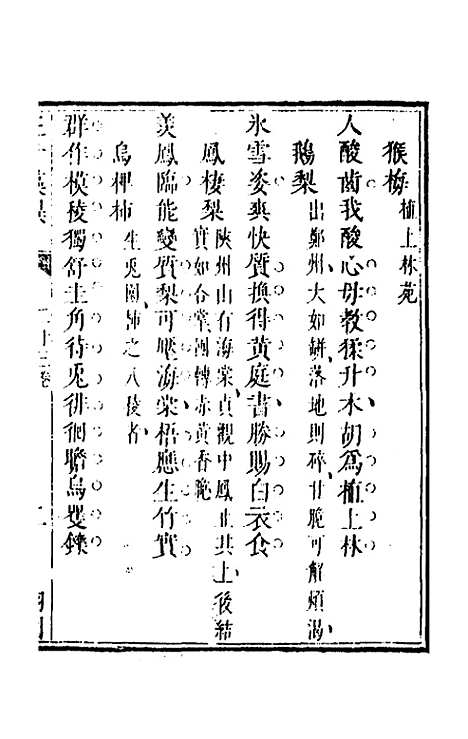 猴梅 植上林苑
人酸齒我酸心毋教猱升木胡為植上林
鵝梨 出鄭州大如缾落地則碎甘脆可解煩渴
氷雪姿爽快質換得黃庭書勝賜白衣食
鳳棲梨 陝州山有海棠貞觀中鳳止其上後結
實如合掌圓轉赤黃香脆
羡鳳臨能變質梨可壓海棠梧應生竹實
烏椑柿 生兎園柿之八稜者
群作模稜獨舒圭角待兎徘徊瞻烏矍鑠